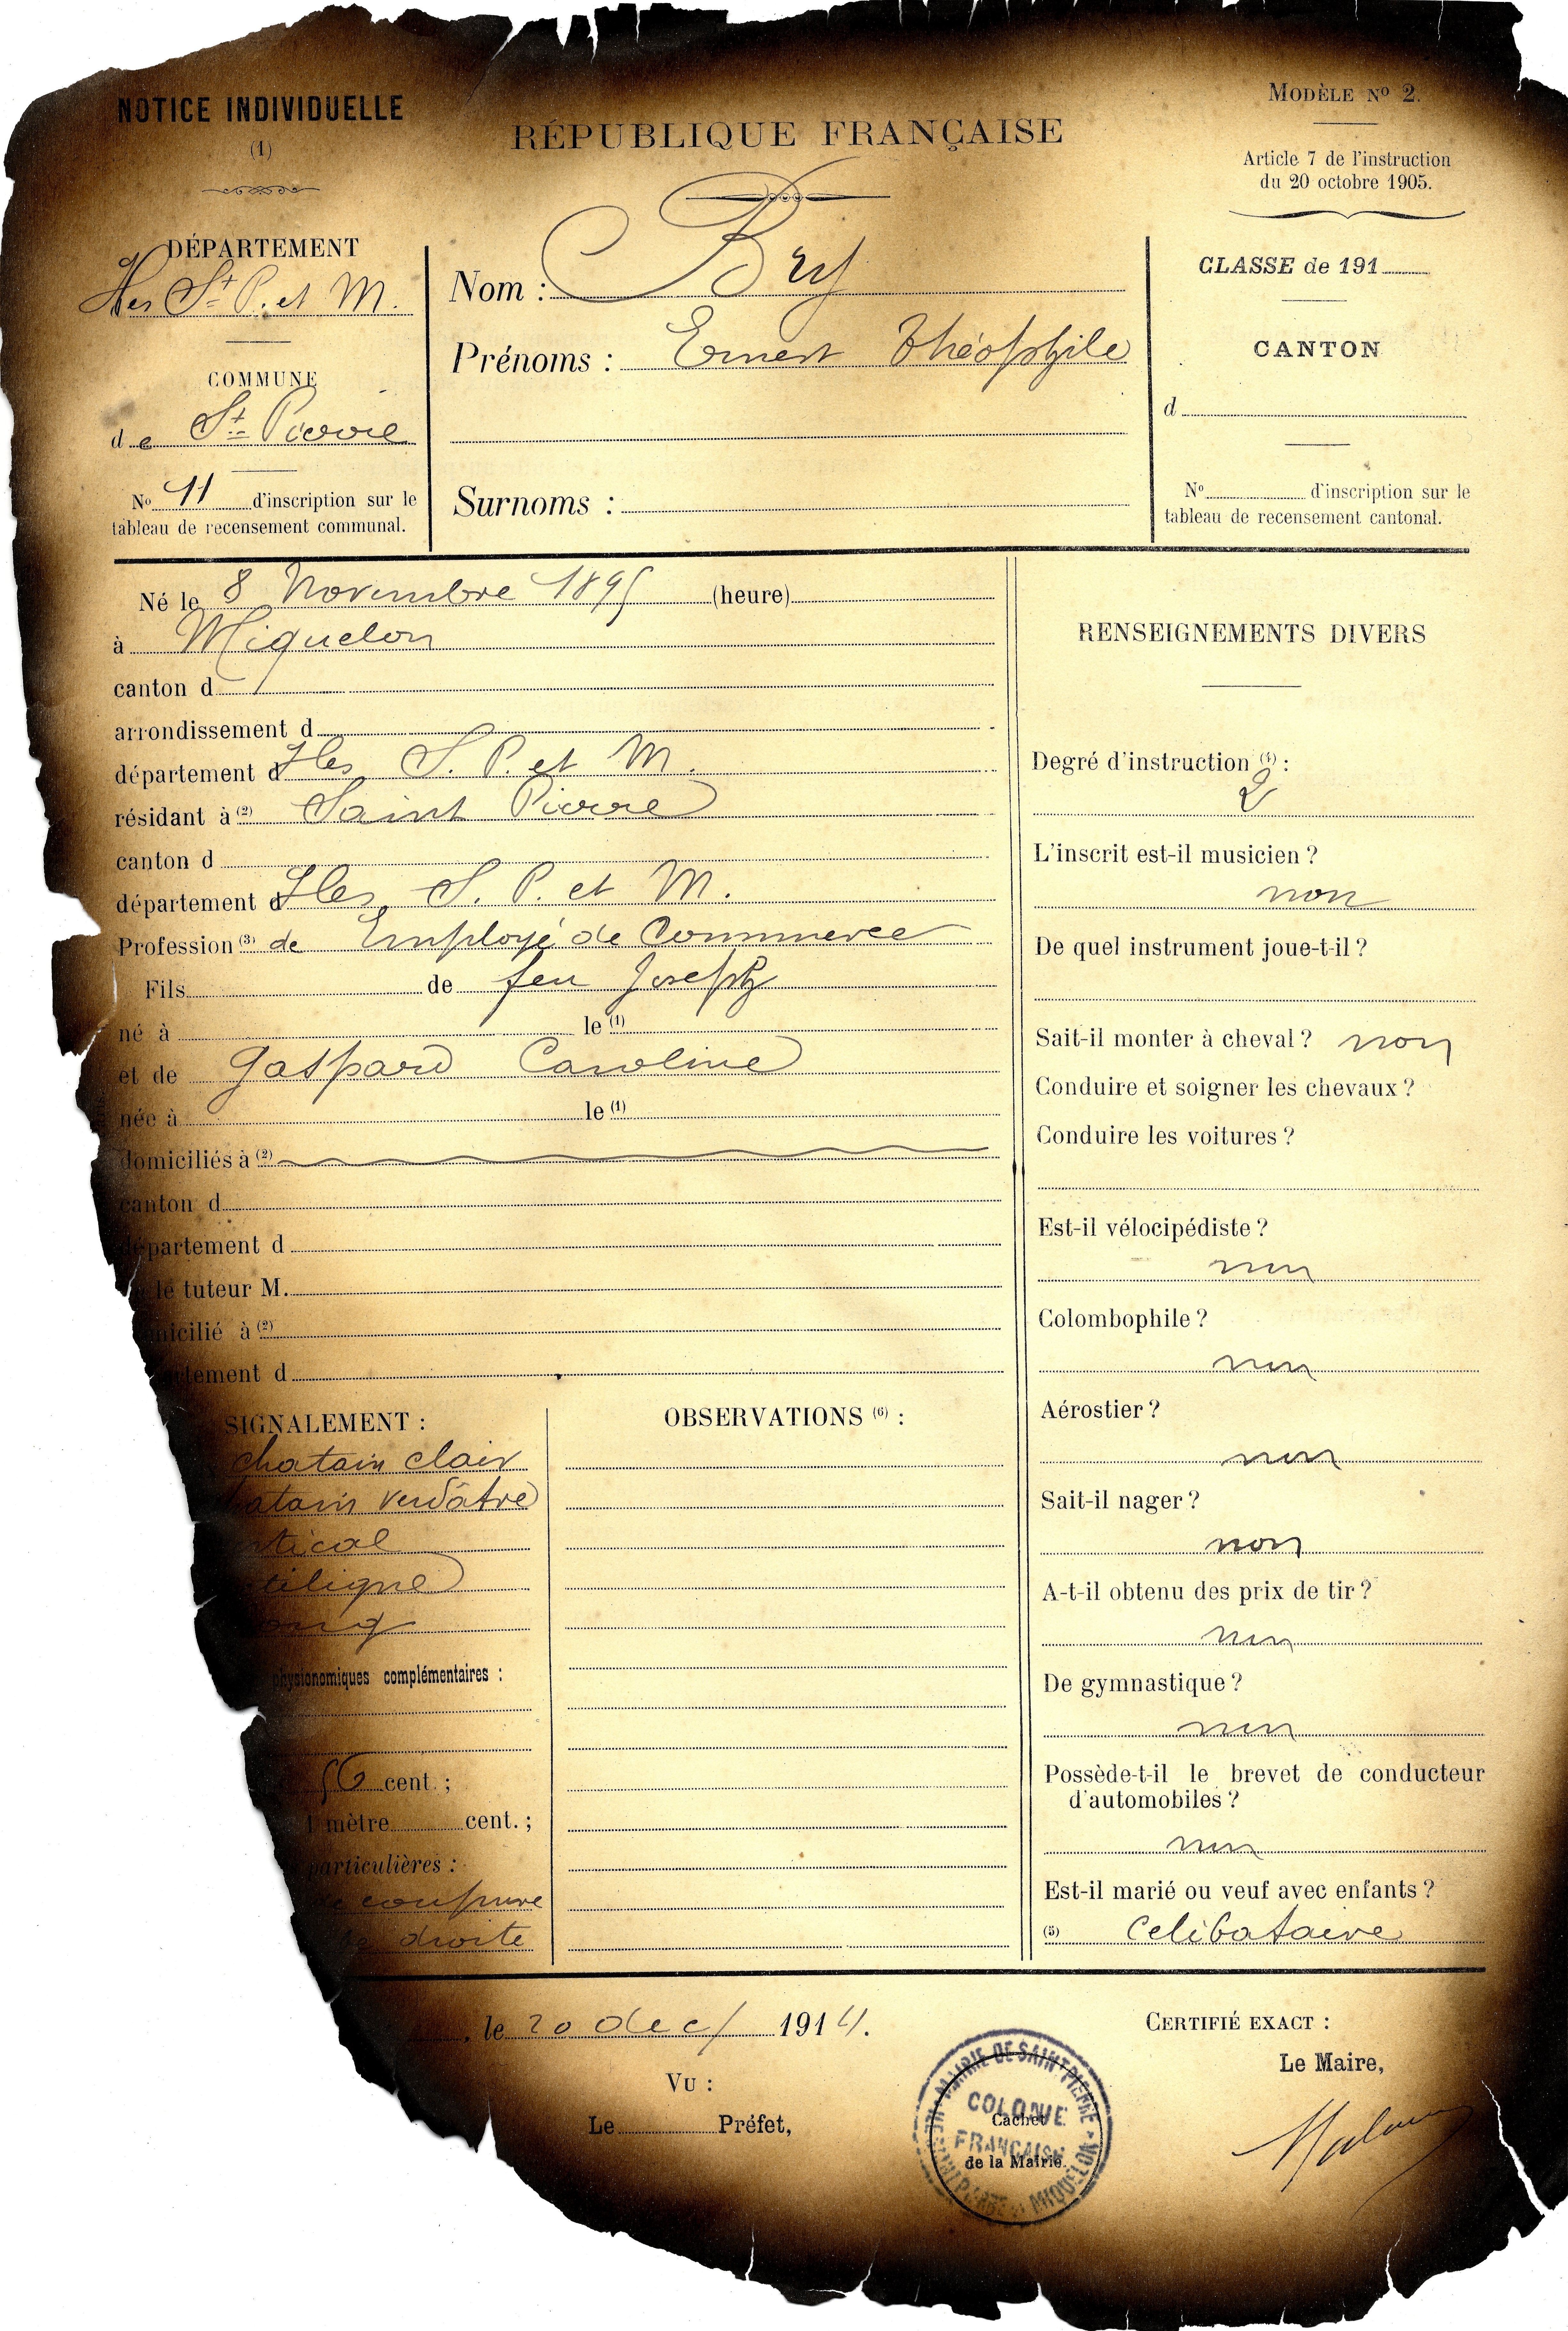 NOTICE INDIVIDUELLE
(1)
RÉPUBLIQUE FRANÇAISE
MODÈLE Nº 2.
Article 7 de l'instruction
du 20 octobre 1905.
DÉPARTEMENT
Iles St P. et M.
COMMUNE
de St Pierre
Nº 11 d'inscription sur le
tableau de recensement communal.
Nom : Bry
Prénoms : Ernest Théophile
Surnoms :
CLASSE de 191
CANTON
d
Nº d'inscription sur le
tableau de recensement cantonal.
Né le 8 Novembre 1895 (heure)
à Miquelon
canton d
arrondissement d
département d Iles S. P. et M.
résidant à (2) Saint Pierre
canton d
département d Iles S. P. et M.
Profession (3) de Employé de Commerce
Fils de feu Joseph
né à le (1)
et de Gaspard Caroline
née à le (1)
domiciliés à (2)
canton d
département d
le tuteur M.
micilié à (2)
tement d
SIGNALEMENT :
chatain clair
atain verdâtre
rtical
ctiligne
ong
physionomiques complémentaires :
56 cent. ;
1 mètre cent. ;
particulières :
de coupure
droite
OBSERVATIONS (6) :
RENSEIGNEMENTS DIVERS
Degré d'instruction (4) :
2
L'inscrit est-il musicien ?
non
De quel instrument joue-t-il ?
Sait-il monter à cheval ? non
Conduire et soigner les chevaux ?
Conduire les voitures ?
Est-il vélocipédiste ?
non
Colombophile ?
non
Aérostier ?
non
Sait-il nager ?
non
A-t-il obtenu des prix de tir ?
non
De gymnastique ?
non
Possède-t-il le brevet de conducteur
d'automobiles ?
non
Est-il marié ou veuf avec enfants ?
(5) celibataire
, le 20 dec/ 1914.
VU :
Le Préfet,
MAIRIE DE SAINT PIERRE
COLONIE
FRANÇAISE
ST PIERRE et MIQUELON
Cachet
de la Mairie.
CERTIFIÉ EXACT :
Le Maire,